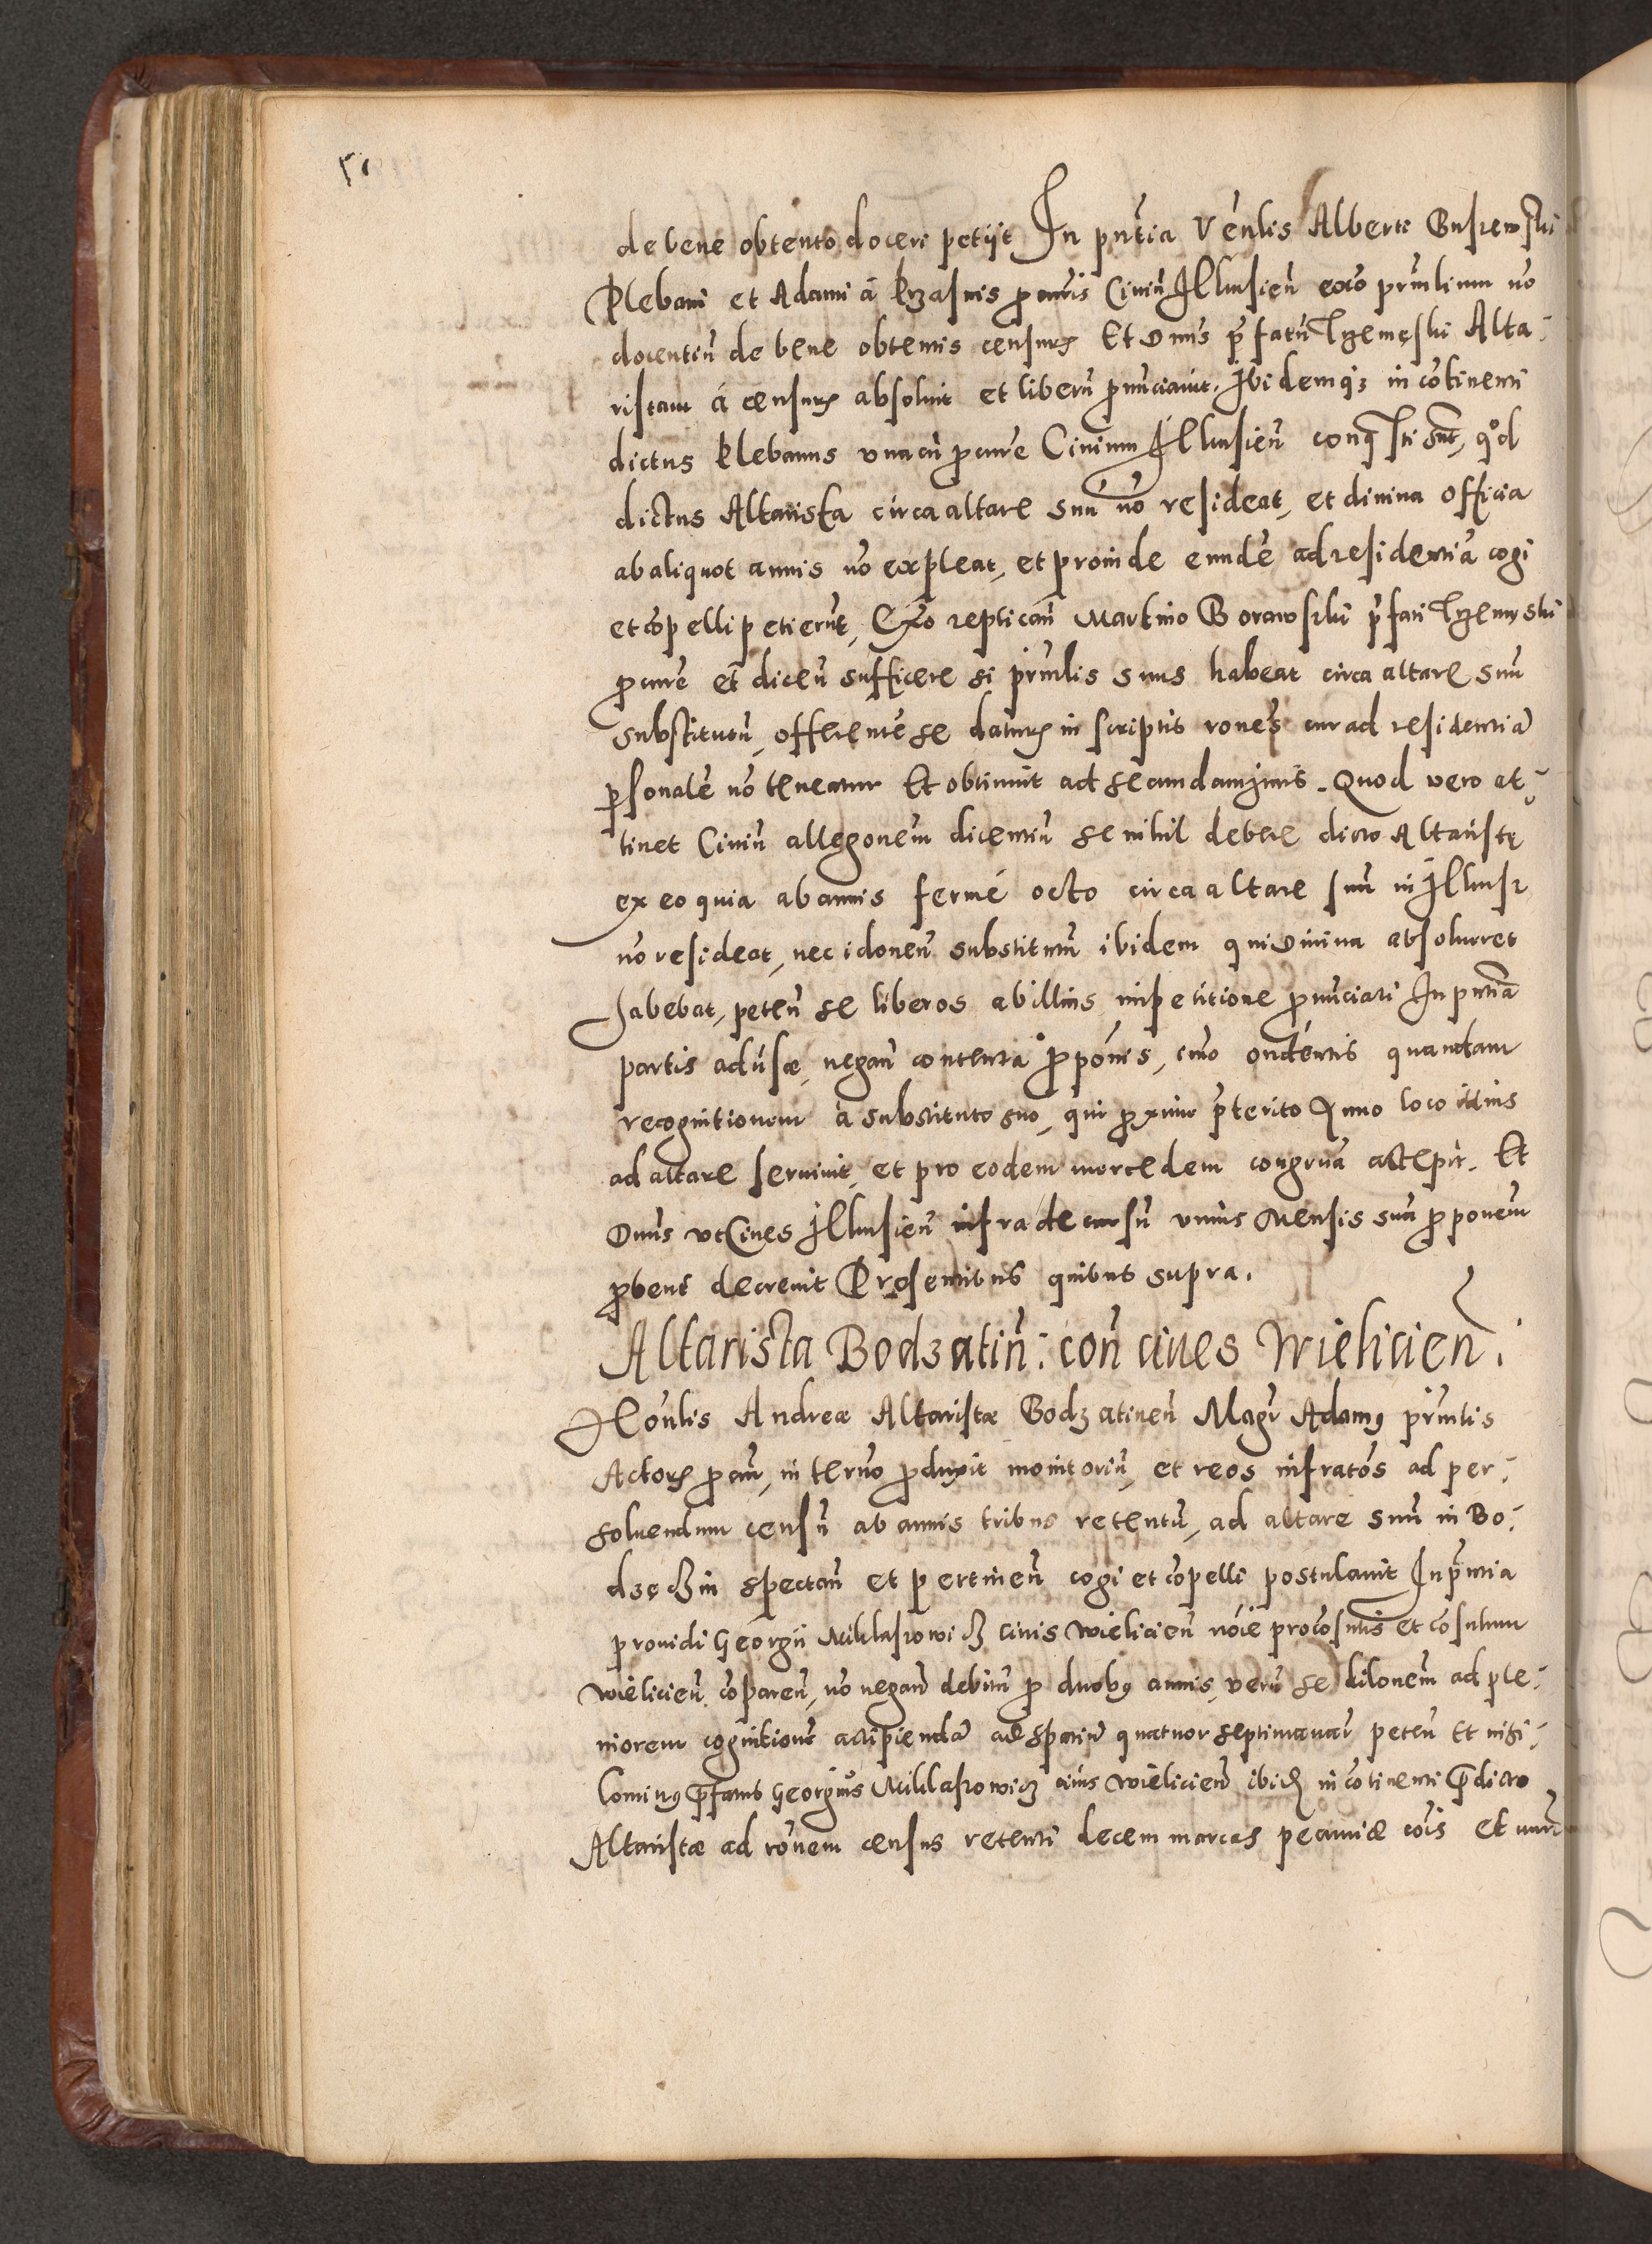 de bene obtento doceri petiit In pñtia Vēnlis Alberti
Plebani et Adami à Krzasnis p̱curis Civiū Illkusieñ exo priñlium nō
docentiū de bene obtentis censurs Et Dnũs p̄fatū Trzemęski Alta-
ristam à censurs absoluit et liberū p̱nũciauit. Ibidemqз in cōtinenti
dictus Plebanus vnacū p̱cure Ciuium Illkusień conq̄sti sũt, qᵒd
dictus Altarista circa altare suū nō resideat, et diuina officia
ab aliquot annis nō expleat, et proinde eundē ad residentiā cogi
et cōpelli petierũt, Exo replicañ Martino Borawski p̄fati Trzemęski
p̱cure et diceñ sufficere si priñlis suus habeat circa altare suū
substitutū, offerente se daturs in scriptis rones cur ad residentiā
p̱sonalē nō teneatur Et obtinuit ad secundam Juris. Quod vero at-
tinet Ciuiū allegonem dicentiū se nihil debere dicto Altaristę
ex eo quia ab annis fermé octo circa altare suū in Illkusz
nō resideat, nec idoneū substitutū ibidem qui Diuina absolueret
habebat, peteñ se liberos ab illius impetitione p̱nũciari In pñtia
partis aduersæ, negañ contenta p̱pōnis, imo ondentis quandam
recognitionem à substituto suo, qui p̱ximo p̄terito Anno loco illius
ad altare seruiuit, et pro eodem mercedem congruā accepit. Et
Dnũs vt Ciues Illkusień infra decursū vnius Mensis suā p̱ponem
p̱bent decreuit Presentibus quibus supra.
Altarista Bodzatiñ: coñ ciues Wielicień.
Hoñlis Andreæ Altaristæ Bodzatineñ Magr Adamꝯ priñlis
Actors p̱cur, in termo p̱duxit monitoriū, et reos infratos ad per-
soluendum censū ab annis tribus retentū, ad altare suū in Bo-
dzęczin spectañ et pertineñ cogi et cōpelli postulauit In p̄ntia
prouidi Georgii Miklaszowicz ciuis Wielicień nōie procōsulis et cōsulum
Wielicień cōpareñ, nō negañ debitū p̱ duobꝯ annis, verū se dilonem ad ple-
niorem cognitionē accipiendā ad spatiū quatuor septimanar peteñ Et nihi-
lominꝯ p̄fatus Georgius Miklaszowicz ciuis Wielicień ibid in cōtinenti p̄dicto
Altaristæ ad ronem census retenti decem marcas pecuniæ cōis et